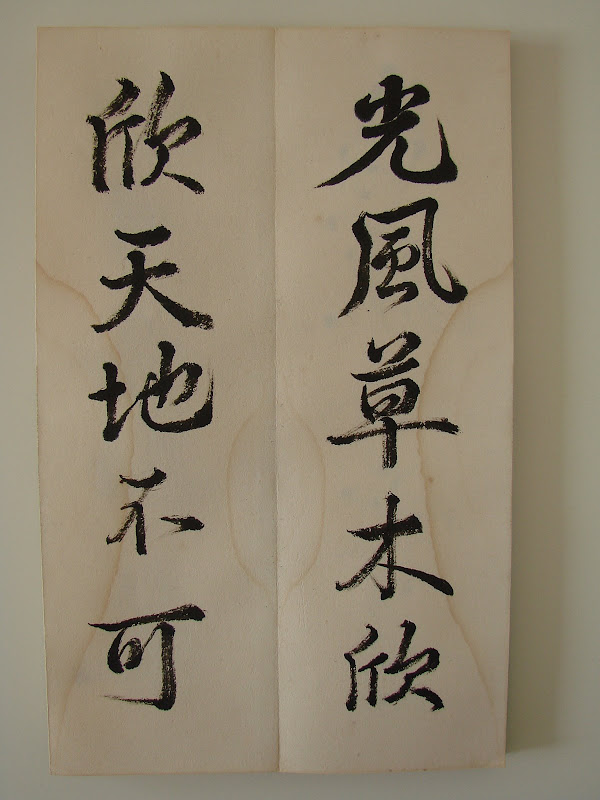 光風草木欣
欣天地不可